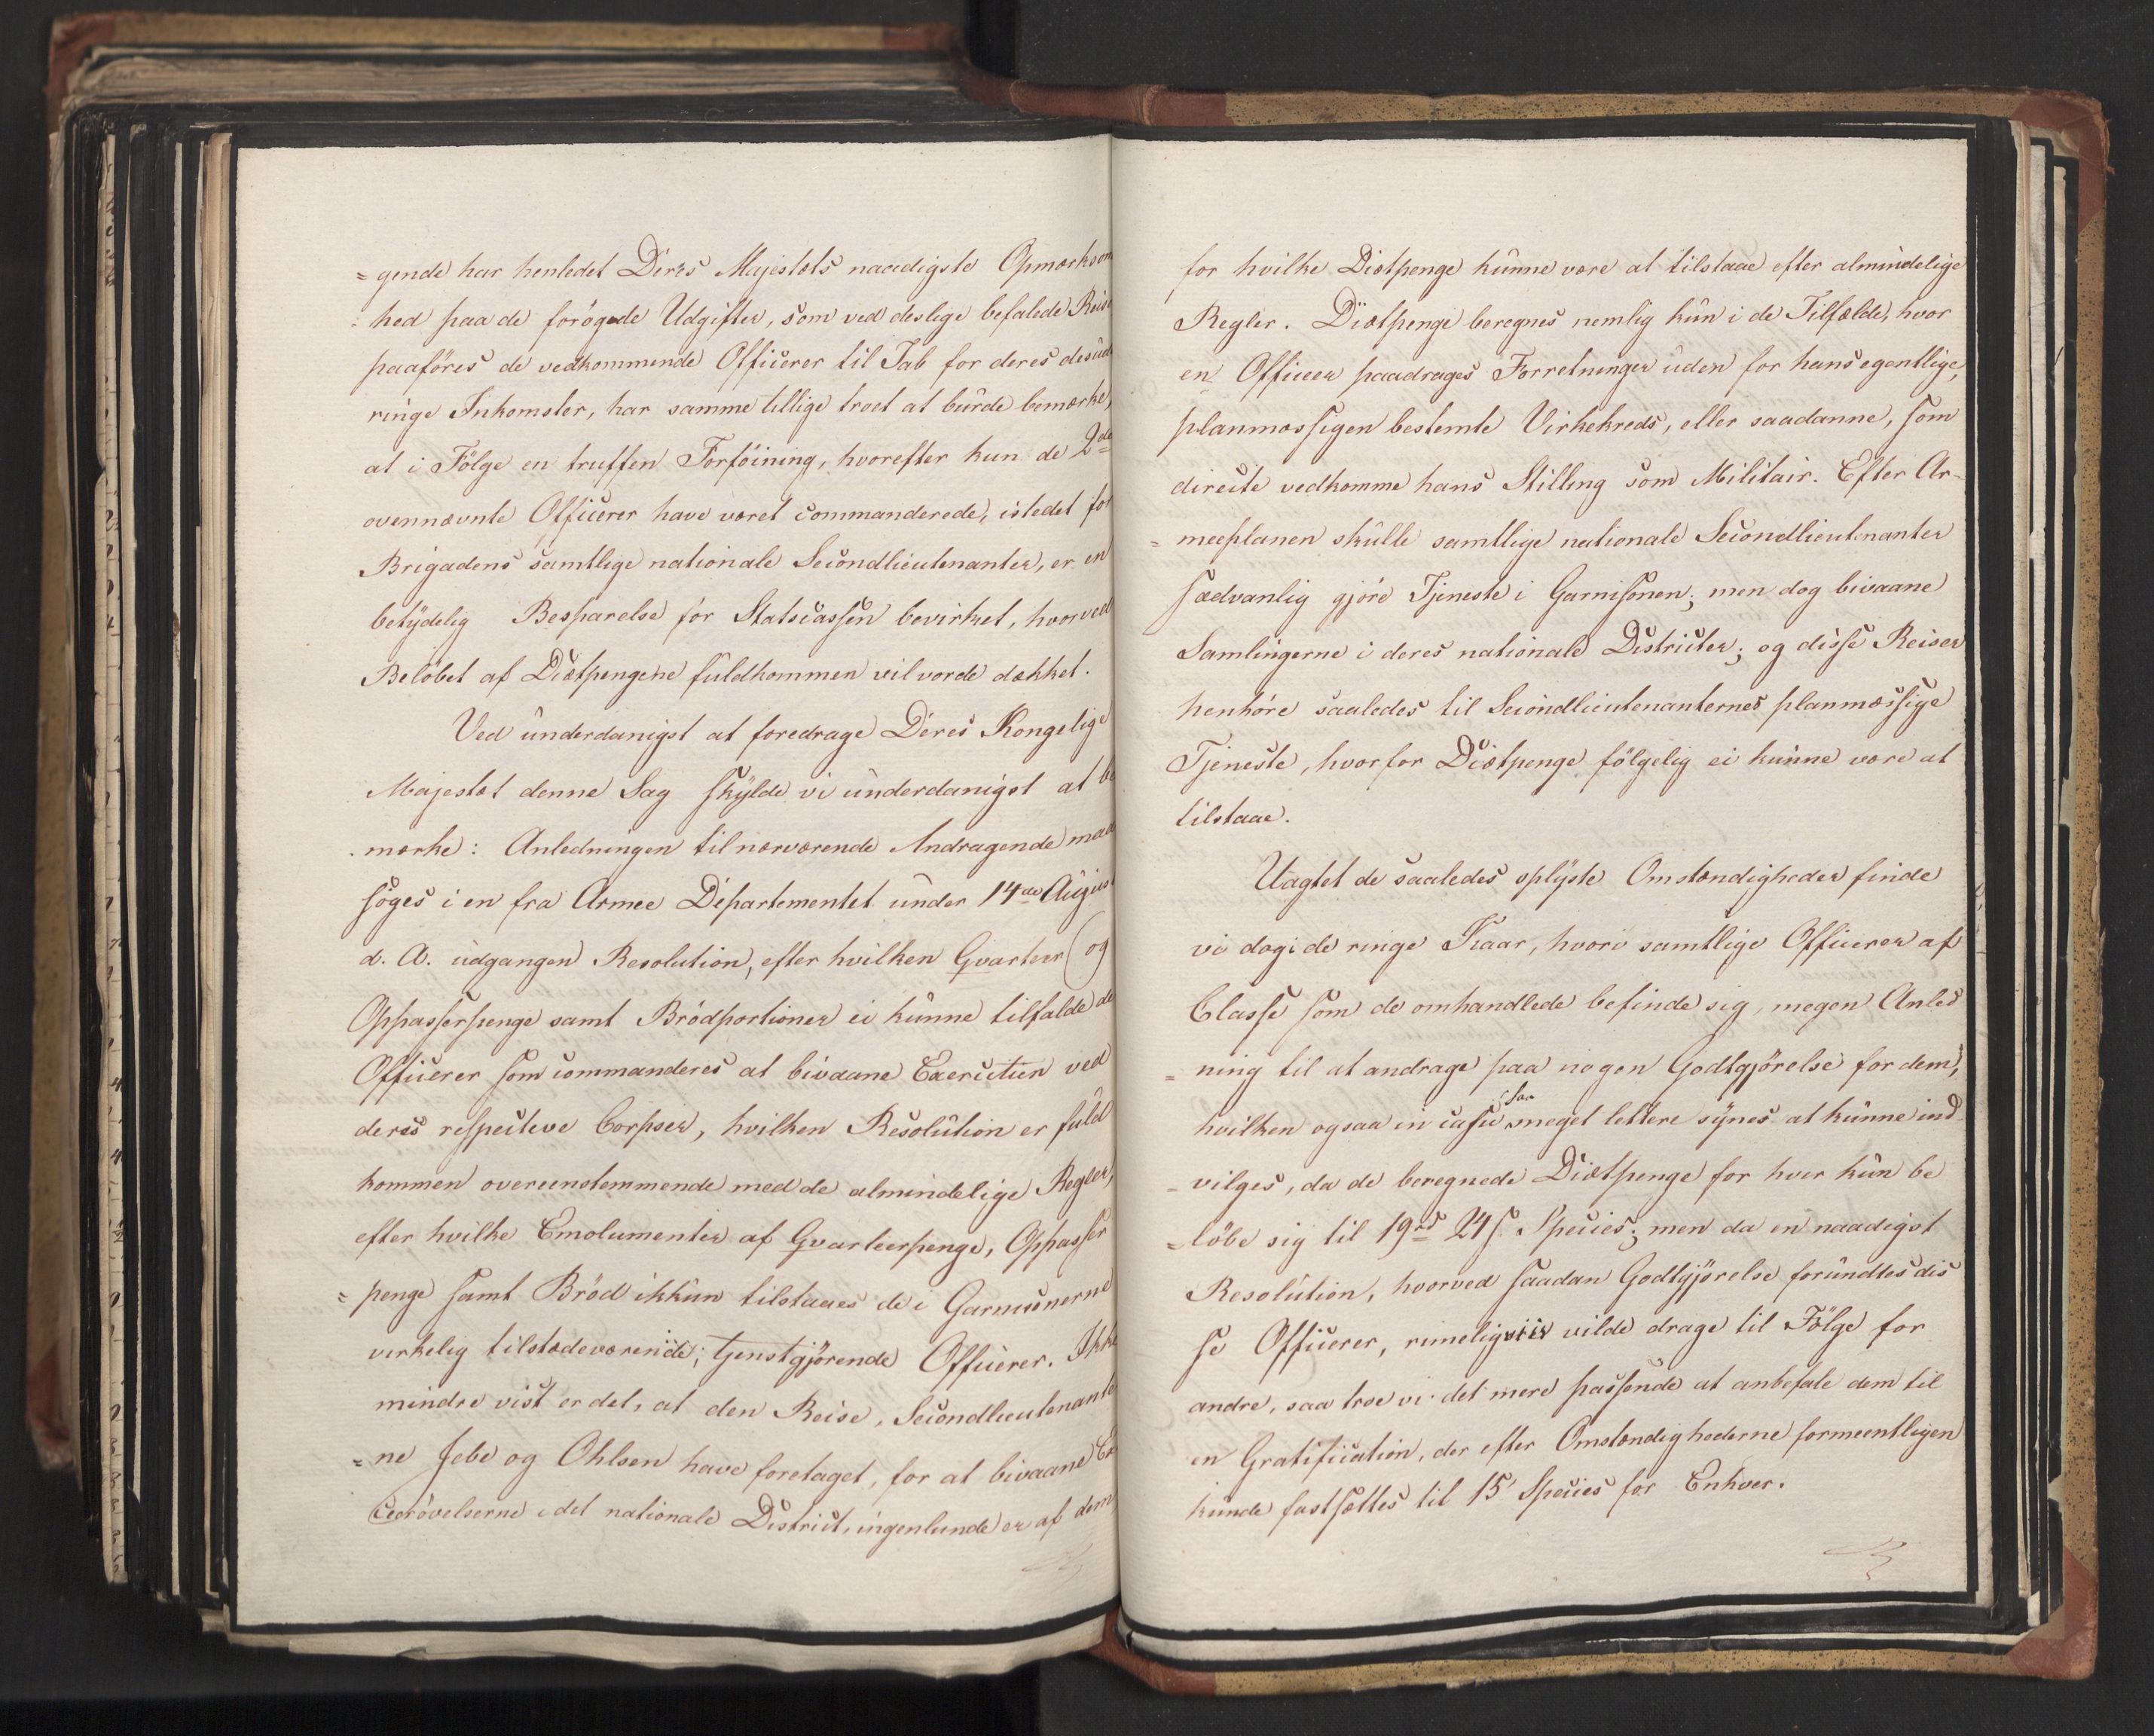 =gende har henledet Deres Majestæts naadigste Opmærksom
=hed paa de forøgede Udgifter, som ved deslige befalede Reise
paaføres de vedkommende Officerer til Tab for deres desud
ringe Inkomster, har samme tillige troet at burde bemærke,
at i Følge en truffen Forføining, hvorefter kun de 2de
ovennævnte Officerer have været commanderede, istedet for
Brigadens samtlige nationale Secondlieutenanter, er en
betydelig Besparelse for Statscassen bevirket, hvorved
Beløbet af Diætpengene fuldkommen vil vorde dækket.
Ved underdanigst at foredrage Deres Kongelige
Majestæt denne Sag skylde vi underdanigst at be
mærke: Anledningen til nærværende Andragende maa
søges i en fra Armee Departementet under 14de August
d. A. udgangen Resolution, efter hvilken Qvarteer (og
Oppasserpenge samt Brødportioner ei kunne tilfalde de
Officerer som commanderes at bivaane Exercitien ved
deres respective Corpser, hvilken Resolution er fuld
kommen overeenstemmende med de almindelige Regler,
efter hvilke Emolumenter af Qvarteerpenge, Oppasser
=penge samt Brød ikkun tilstaaes de i Garnisonerne
virkelig tilstædeværende, tjenstgjørende Officerer. Ikke
mindre vist er det, at den Reise, Secondlieutenante
=ne Jebe og Ohlsen have foretaget, for at bivaane Ex
cerøvelserne i det nationale District, ingenlunde er af dem,
for hvilke Diætpenge kunne være at tilstaae efter almindelige
Regler. Diætpenge beregnes nemlig kun i de Tilfælde, hvor
en Officeer paadrages Forretninger uden for hans egentlige,
planmæssigen bestemte Virkekreds, eller saadanne, som
directe vedkomme hans Stilling som Militair. Efter Ar-
=meeplanen skulle samtlige nationale Secondlieutenanter
sædvanlig gjøre Tjeneste i Garnisonen; men dog bivaane
Samlingerne i deres nationale Districter; og disse Reiser
henhøre saaledes til Secondlieutenanternes planmæssige
Tjeneste, hvorfor Diætpenge følgelig ei kunne være at
tilstaae.
Uagtet de saaledes oplyste Omstændigheder finde
vi dog i de ringe Kaar, hvori samtlige Officerer af
Classe som de omhandlede befinde sig, megen Anled
=ning til at andrage paa nogen Godtgjørelse for dem,
hvilken ogsaa in casu saa meget lettere synes at kunne ind
=vilges, da de beregnede Diætpenge for hver kun be
=løbe sig til 19rd 24s Species; men da en naadigst
Resolution, hvorved saadan Godtgjørelse forundtes dis
se Officerer, rimeligviis vilde drage til Følge for
andre, saa troe vi det mere passende at anbefale dem til
en Gratification, der efter Omstændighederne formeentligen
kunde fastsættes til 15 Species for Enhver.